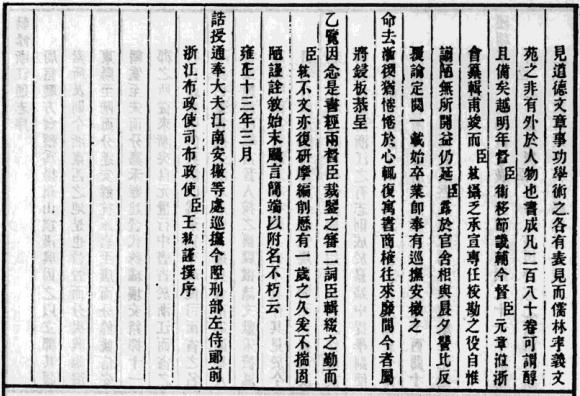 見道德文章事功學術之各有表見而儒林率義文
苑之非有外於人物也書成凡二百八十卷可謂醇
且備矣越明年督臣 衞移節畿輔今督臣 元章涖浙
會纂輯甫竣而臣 紘攝乏承宣專任校勘之役自惟
譾陋無所開益仍延臣 露於官舍相與晨夕讐比反
覆論定閱一載始卒業卽奉有巡撫安徽之
命去漸復猶惓惓於心輒復寓書商榷往來靡間今者屬
將鋟板恭呈
乙覽因念是書經兩督臣裁鑒之審二詞臣輯綴之勤而
臣 紘不文亦復研摩編削歷有一歲之久爰不揣固
陋謹詮敘始末颺言簡端以附名不朽云
雍正十三年三月
誥授通奉大夫江南安徽等處巡撫今陞刑部左侍郞前
浙江布政使司布政使臣 王紘謹撰序